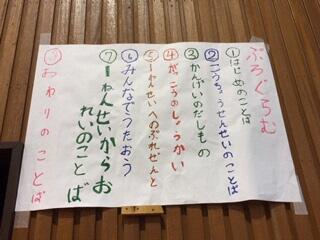 ぷろぐらむ
①はじめのことば
②こうちょうせんせいのことば
③かんげいのだしもの
④がっこうのしょうかい
⑤1ねんせいへのぷれぜんと
⑥みんなでうたおう
⑦1ねんせいからお
れいのことば
⑧おわりのことば